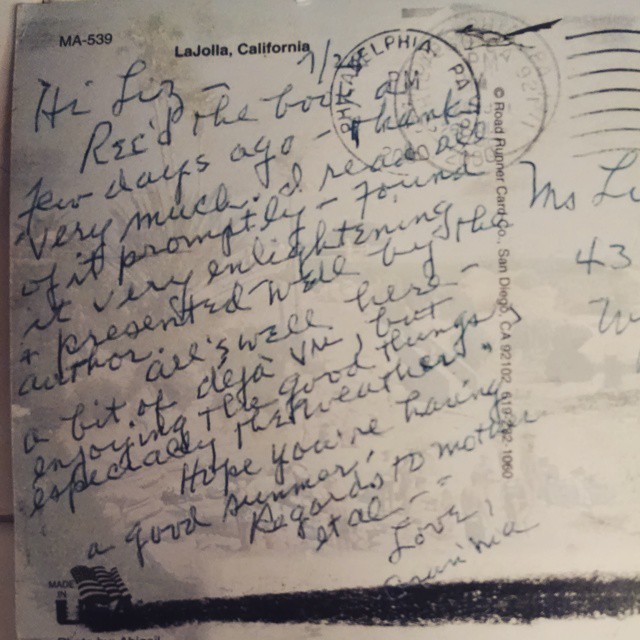 MA-539
LaJolla, California
7/2
Hi Liz -
Rec'd the book a
few days ago - thanks
very much. I read all
of it promptly - found
it very enlightening
& presented well by the
author. All's well here -
a bit of deja vu, but
enjoying the good things,
especially the weather!
Hope you're having
a good summer!
Regards to mother
et al -
Love,
PHILADELPHIA, PA
PM
© Road Runner Card Co., San Diego, CA 92102
Ms Li
43
W
MADE
IN